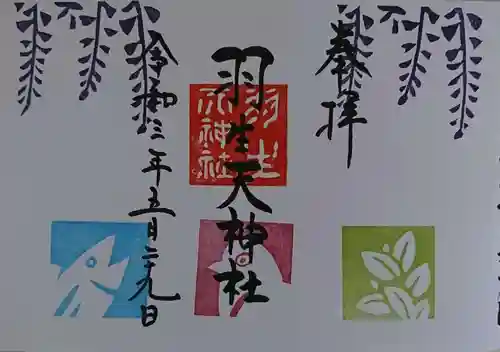 奉拝
羽生天神社
羽生天神社
令和三年五月二十九日